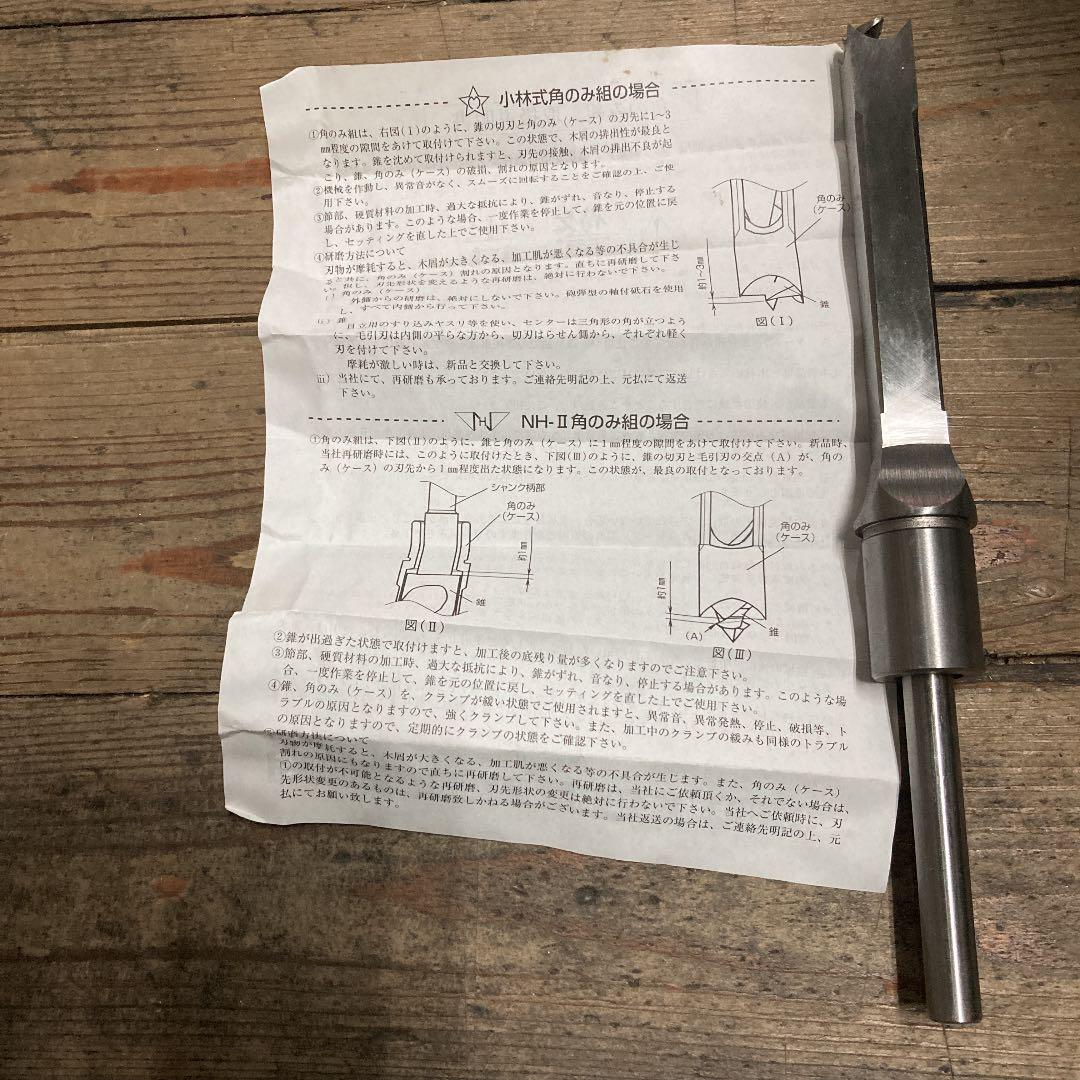 小林式角のみ組の場合
①角のみ組は、右図(Ⅰ)のように、錐の切刃と角のみ（ケース）の刃先に1〜3
㎜程度の隙間をあけて取付けて下さい。この状態で、木屑の排出性が最良と
なります。錐を沈めて取付けられますと、刃先の接触、木屑の排出不良が起
こり、錐、角のみ（ケース）の破損、割れの原因となります。
②機械を作動し、異常音がなく、スムーズに回転することをご確認の上、ご使
用下さい。
③節部、硬質材料の加工時、過大な抵抗により、錐がずれ、音なり、停止する
場合があります。このような場合、一度作業を停止して、錐を元の位置に戻
し、セッティングを直した上でご使用下さい。
④研磨方法について
刃物が摩耗すると、木屑が大きくなる、加工肌が悪くなる等の不具合が生じ
ると共に、角のみ（ケース）割れの原因となります。直ちに再研磨して下さ
い。但し、刃先形状を変えるような再研磨は、絶対に行わないで下さい。
ⅰ）角のみ（ケース）
外錐からの研磨は、絶対にしないで下さい。砲弾型の軸付砥石を使用
し、すべて内側から行って下さい。
ⅱ）錐
目立用のすり込みヤスリ等を使い、センターは三角形の角が立つよう
に、毛引刃は内側の平らな方から、切刃はらせん側から、それぞれ軽く
刃を付けて下さい。
摩耗が激しい時は、新品と交換して下さい。
ⅲ）当社にて、再研磨も承っております。ご連絡先明記の上、元払にて返送
下さい。
角のみ
（ケース）
約1〜3㎜
錐
図(Ⅰ)
NH-Ⅱ角のみ組の場合
①角のみ組は、下図(Ⅱ)のように、錐と角のみ（ケース）に1㎜程度の隙間をあけて取付けて下さい。新品時、
当社再研磨時には、このように取付けたとき、下図(Ⅲ)のように、錐の切刃と毛引刃の交点（A）が、角の
み（ケース）の刃先から1㎜程度出た状態になります。この状態が、最良の取付となっております。
シャンク柄部
角のみ
（ケース）
約1㎜
錐
図(Ⅱ)
角のみ
（ケース）
約1㎜
(A)
錐
図(Ⅲ)
②錐が出過ぎた状態で取付けますと、加工後の底残り量が多くなりますのでご注意下さい。
③節部、硬質材料の加工時、過大な抵抗により、錐がずれ、音なり、停止する場合があります。このような場
合、一度作業を停止して、錐を元の位置に戻し、セッティングを直した上でご使用下さい。
④錐、角のみ（ケース）を、クランプが緩い状態でご使用されますと、異常音、異常発熱、停止、破損等、ト
ラブルの原因となりますので、強くクランプして下さい。また、加工中のクランプの緩みも同様のトラブル
の原因となりますので、定期的にクランプの状態をご確認下さい。
⑤研磨方法について
刃物が摩耗すると、木屑が大きくなる、加工肌が悪くなる等の不具合が生じます。また、角のみ（ケース）
割れの原因にもなりますので直ちに再研磨して下さい。再研磨は、当社にご依頼頂くか、それでない場合は、
①の取付が不可能となるような再研磨、刃先形状の変更は絶対に行わないで下さい。当社へご依頼時に、刃
先形状変更のあるものは、再研磨致しかねる場合がございます。当社返送の場合は、ご連絡先明記の上、元
払にてお願い致します。